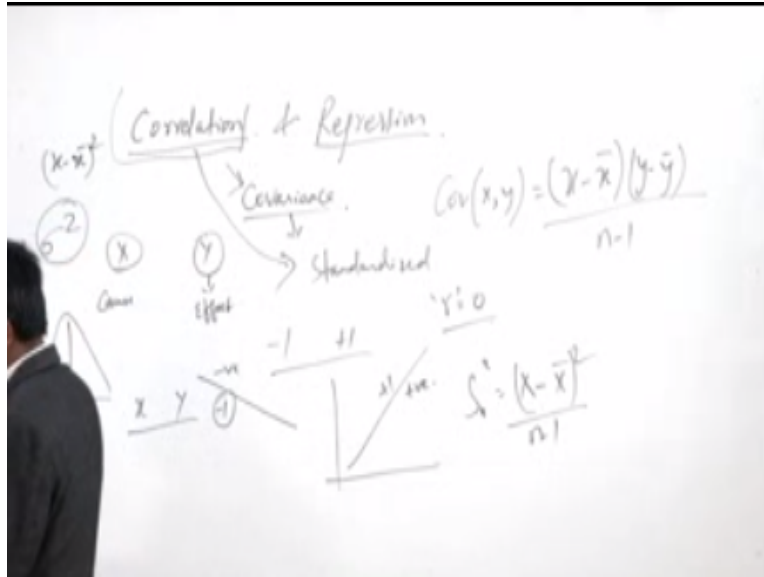 Correlation & Regression
(x-x̄)²
Covariance.
Cov(x,y) = (x-x̄)(y-ȳ)
n-1
σ²
X Y
Cause Effect
Standardized
-1 +1
'r': 0
-ve
X Y
-1
+1 +ve.
S² = (x-x̄)²
n-1